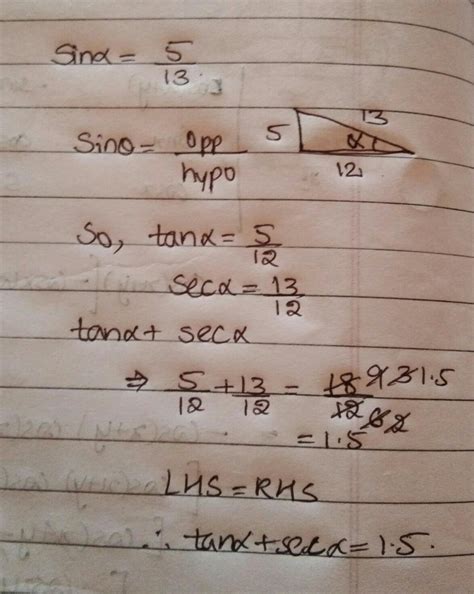 Sinα = 5/13
Sinθ = opp/hypo 5 13 α 12
So, tanα = 5/12
secα = 13/12
tanα + secα
⇒ 5/12 + 13/12 = 18/12 9 6 3 2 1.5
= 1.5
LHS = RHS
∴ tanα + secα = 1.5.